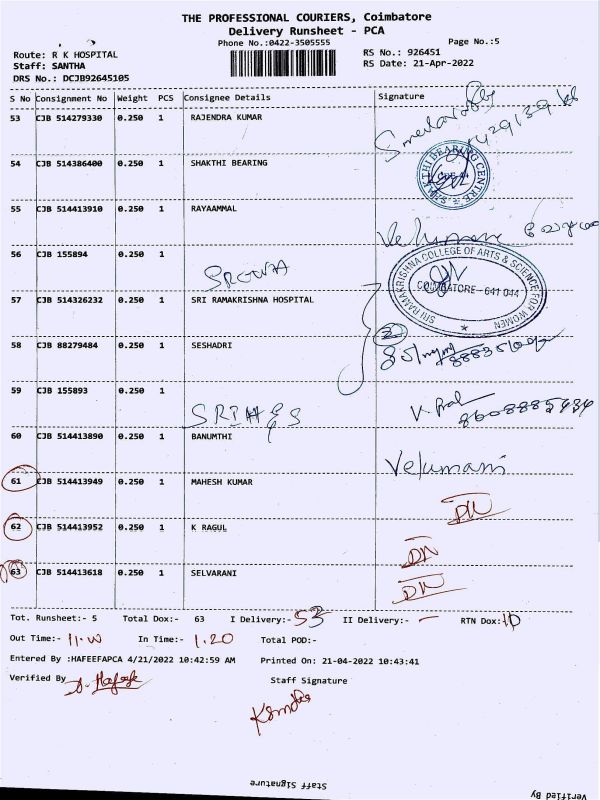 THE PROFESSIONAL COURIERS, Coimbatore
Delivery Runsheet - PCA
Phone No.:0422-3505555
Page No.:5
Route: R K HOSPITAL
RS No.: 926451
Staff: SANTHA
RS Date: 21-Apr-2022
DRS No.: DCJB92645105
S No Consignment No Weight PCS Consignee Details Signature
53 CJB 514279330 0.250 1 RAJENDRA KUMAR
54 CJB 514386400 0.250 1 SHAKTHI BEARING
SHAKTHI BEARING CENTRE
55 CJB 514413910 0.250 1 RAYAAMMAL
Velumani
56 CJB 155894 0.250 1
SRI RAMAKRISHNA COLLEGE OF ARTS & SCIENCE FOR WOMEN
COIMBATORE-641 044
57 CJB 514326232 0.250 1 SRI RAMAKRISHNA HOSPITAL
58 CJB 88279484 0.250 1 SESHADRI
2
59 CJB 155893 0.250 1
60 CJB 514413890 0.250 1 BANUMTHI
Velumani
61 CJB 514413949 0.250 1 MAHESH KUMAR
DN
62 CJB 514413952 0.250 1 K RAGUL
DN
63 CJB 514413618 0.250 1 SELVARANI
DN
Tot. Runsheet:- 5 Total Dox:- 63 I Delivery:- 53 II Delivery:- — RTN Dox: 10
Out Time:- In Time:- 1.20 Total POD:-
Entered By :HAFEEFAPCA 4/21/2022 10:42:59 AM Printed On: 21-04-2022 10:43:41
Verified By Staff Signature
Staff Signature
Verified By